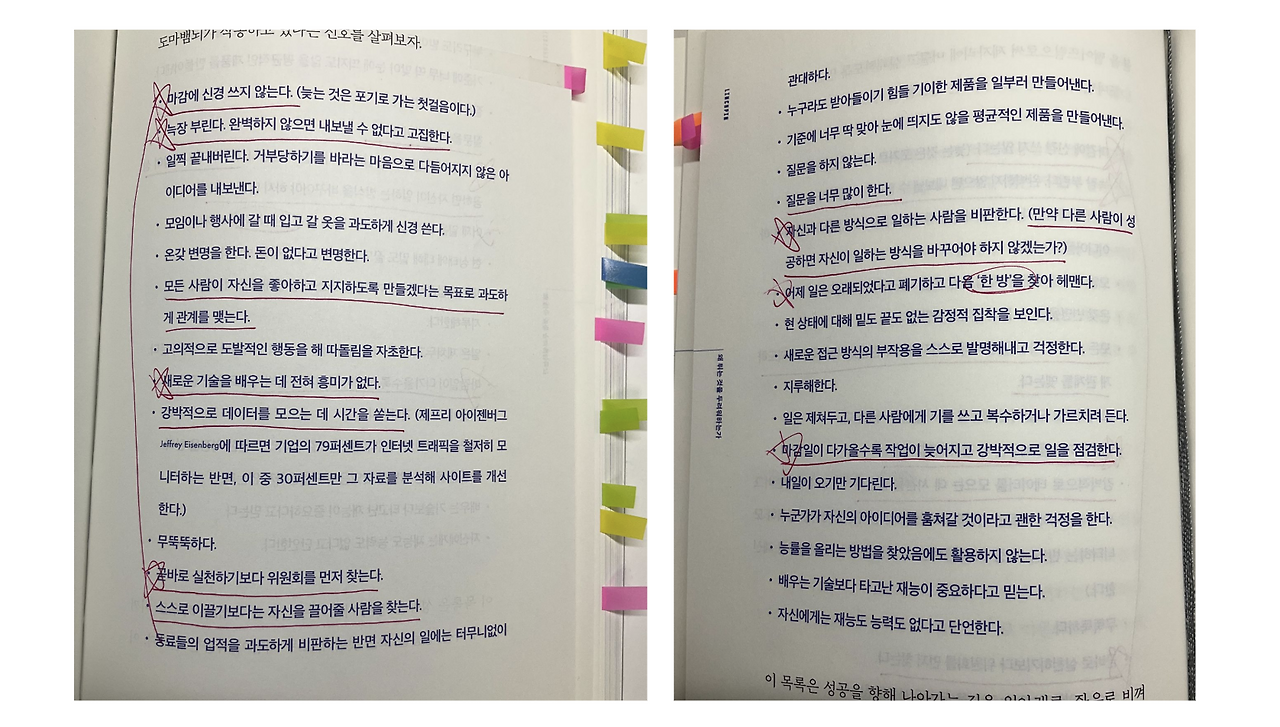 도마뱀뇌가 작동하고 있다는 신호를 살펴보자.
· 마감에 신경 쓰지 않는다. (늦는 것은 포기로 가는 첫걸음이다.)
· 늑장 부린다. 완벽하지 않으면 내보낼 수 없다고 고집한다.
· 일찍 끝내버린다. 거부당하기를 바라는 마음으로 다듬어지지 않은 아
이디어를 내보낸다.
· 모임이나 행사에 갈 때 입고 갈 옷을 과도하게 신경 쓴다.
· 온갖 변명을 한다. 돈이 없다고 변명한다.
· 모든 사람이 자신을 좋아하고 지지하도록 만들겠다는 목표로 과도하
게 관계를 맺는다.
· 고의적으로 도발적인 행동을 해 따돌림을 자초한다.
· 새로운 기술을 배우는 데 전혀 흥미가 없다.
· 강박적으로 데이터를 모으는 데 시간을 쏟는다. (제프리 아이젠버그
Jeffrey Eisenberg에 따르면 기업의 79퍼센트가 인터넷 트래픽을 철저히 모
니터하는 반면, 이 중 30퍼센트만 그 자료를 분석해 사이트를 개선
한다.)
· 무뚝뚝하다.
· 곧바로 실천하기보다 위원회를 먼저 찾는다.
· 스스로 이끌기보다는 자신을 끌어줄 사람을 찾는다.
· 동료들의 업적을 과도하게 비판하는 반면 자신의 일에는 터무니없이
관대하다.
· 누구라도 받아들이기 힘들 기이한 제품을 일부러 만들어낸다.
· 기준에 너무 딱 맞아 눈에 띄지도 않을 평균적인 제품을 만들어낸다.
· 질문을 하지 않는다.
· 질문을 너무 많이 한다.
· 자신과 다른 방식으로 일하는 사람을 비판한다. (만약 다른 사람이 성
공하면 자신이 일하는 방식을 바꾸어야 하지 않겠는가?)
· 어제 일은 오래되었다고 폐기하고 다음 ‘한 방’을 찾아 헤맨다.
· 현 상태에 대해 밑도 끝도 없는 감정적 집착을 보인다.
· 새로운 접근 방식의 부작용을 스스로 발명해내고 걱정한다.
· 지루해한다.
· 일은 제쳐두고, 다른 사람에게 기를 쓰고 복수하거나 가르치려 든다.
· 마감일이 다가올수록 작업이 늦어지고 강박적으로 일을 점검한다.
· 내일이 오기만 기다린다.
· 누군가가 자신의 아이디어를 훔쳐갈 것이라고 괜한 걱정을 한다.
· 능률을 올리는 방법을 찾았음에도 활용하지 않는다.
· 배우는 기술보다 타고난 재능이 중요하다고 믿는다.
· 자신에게는 재능도 능력도 없다고 단언한다.
이 목록은 성공을 향해 나아가는